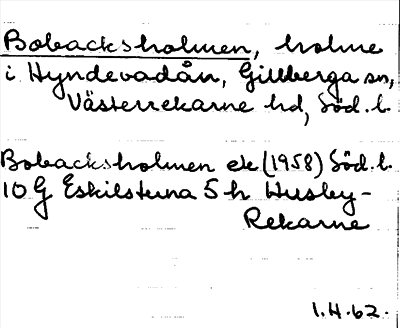 Bobacksholmen, holme
i Hyndevadån, Gillberga sn,
Västerrekarne hd, Söd. l.
Bobacksholmen ek (1958) Söd. l.
10 G Eskilstuna 5 h Husby-
Rekarne
1.H.62.